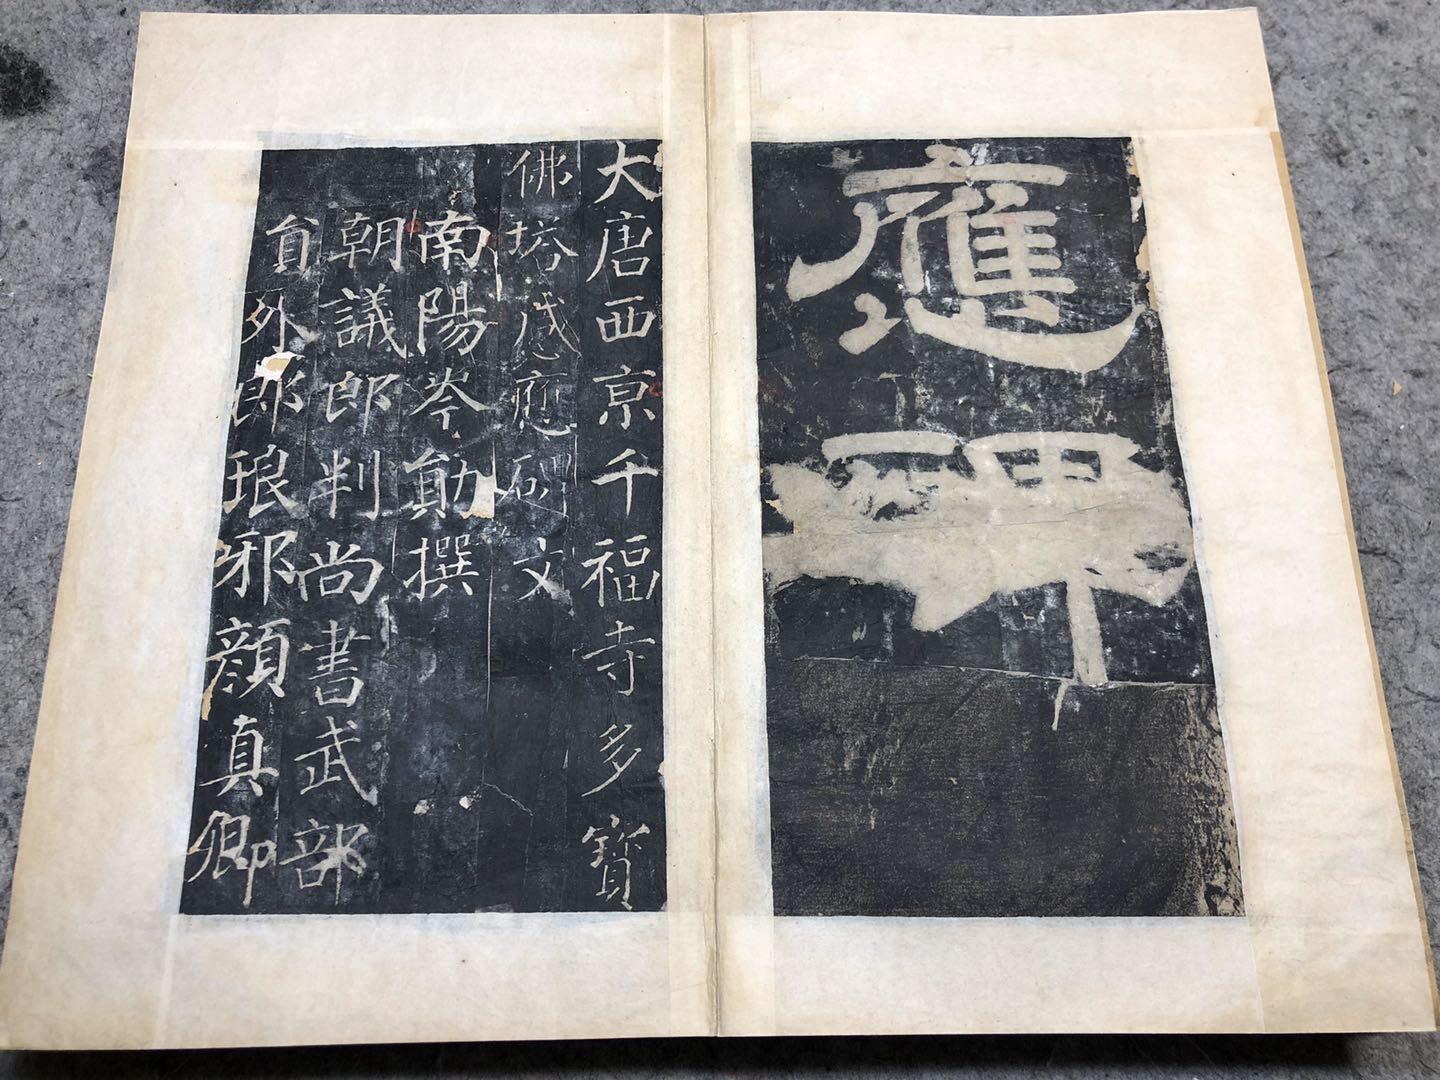 應碑
大唐西京千福寺多寶
佛塔感應碑文
南陽岑勛撰
朝議郎判尚書武部
員外郎琅邪顏真卿